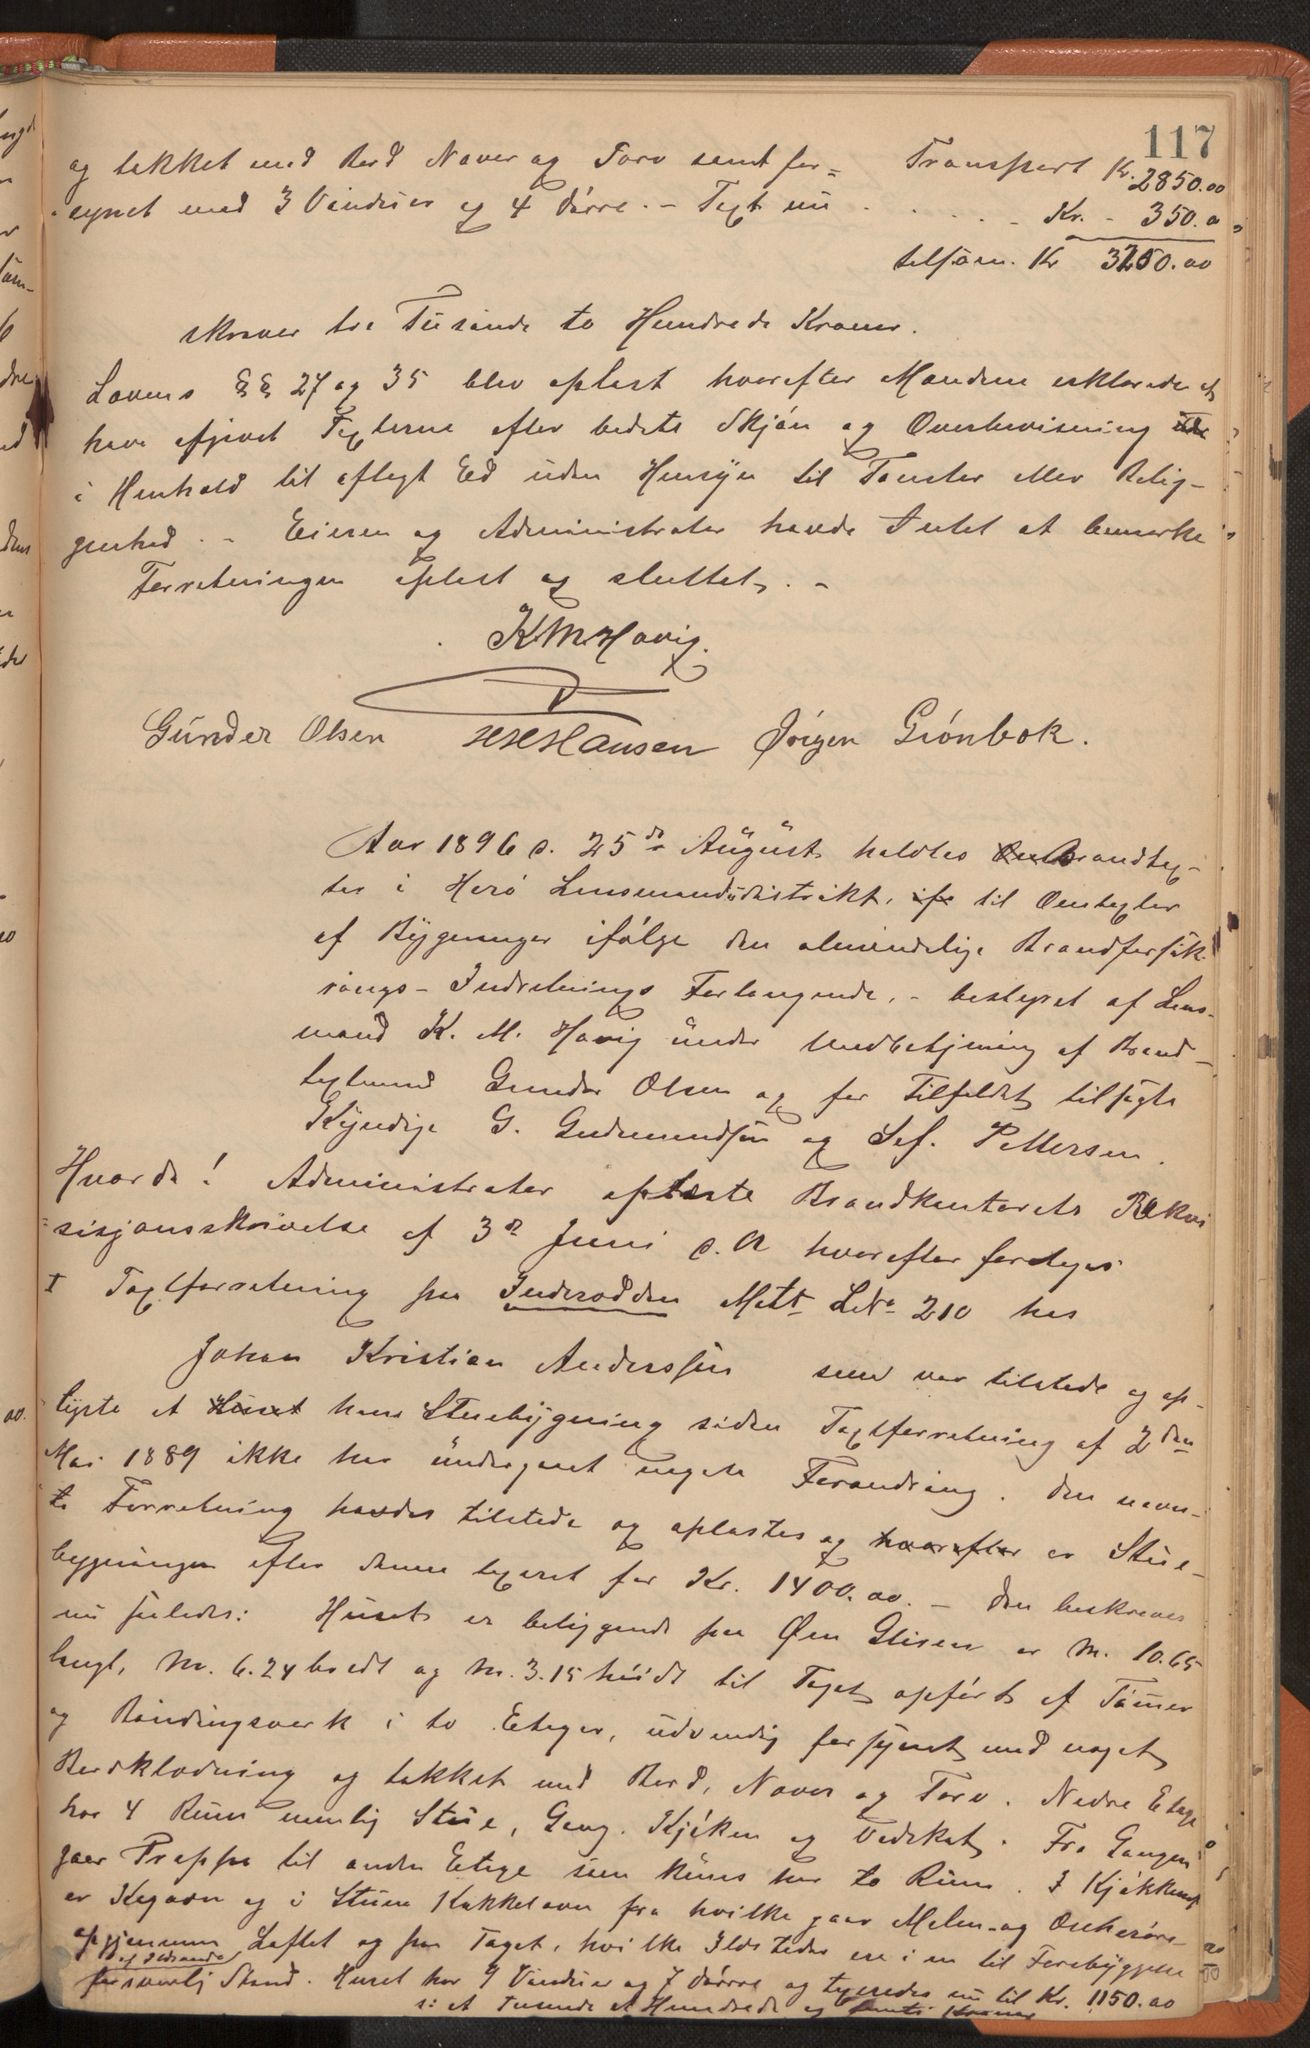 117
og tækket med Bord Næver og Torv samt for= Transport Kr. 2850.00
synet med 3 Vinduer og 4 Dørre. - Taxt nu . . . . - Kr. - 350.00
tilsam. Kr 3250.00
skriver tre Tusinde to Hundrede Kroner.
Lovens §§ 27 og 35 blev oplæst hvorefter Mændene erklærede at
have afgivet Taxterne efter bedste Skjøn og Overbevisning
i Henhold til aflagt Ed uden Hensyn til Tomter eller Belig-
genhed. - Eieren og Administrator havde Intet at bemærke
Forretningen oplæst og sluttet. -
K M Havig.
Gunder Olsen H H Hansen Jørgen Grønbok.
Aar 1896 d. 25de August holdtes Brandtax-
ter i Herø Lensmandsdistrikt, til Omtaxter
af Bygninger ifølge den almindelige Brandforsik-
rings-Indretnings Forlangende, - bestyret af Lens-
mand K. M. Havig under Medbetjening af Brand-
taxtmand Gunder Olsen og for Tilfældet tilsagte
Kyndige G. Gudmundsen og Sef. Pettersen.
Hvorda! Administrator oplæste Brandkontorets Rekvi
=sisjonsskrivelse af 3de Juni d. A hvorefter foretoges
I Taxtforretning paa Inderodden Matr LNo 210 hos
Johan Kristian Anderssen som var tilstede og op-
lyste at Huset hans Stuebygning siden Taxtforretning af 2den
Mai 1889 ikke har undergaaet nogen Forandring. Den nævn-
te Forretning havdes tilstede og oplæstes og hvorefter er Stue-
bygningen efter denne taxeret for Kr. 1400.00. - Den beskrives
nu saaledes: Huset er beliggende paa Øen Glisen er M. 10.65
langt, M. 6.24 bredt og M. 3.15 høidt til Taget opført af Tømer
og Bindingsverk i to Etager, udvendig forsynet med noget
Bordklædning og tækket med Bord, Næver og Torv. Nedre Etage
har 4 Rum nemlig Stue, Gang, Kjøken og Vedskot. Fra Gangen
gaar Trappe til anden Etage som kuns har to Rum. I Kjøkkenet
er Kogovn og i Stuen Kakkelovn fra hvilke gaar Malm- og Onkerøre
opgjennem Loftet og paa Taget, hvilke Ildsteder ere i en til Forebyggelse
af Ildsvaade
forsvarlig Stand. Huset har 9 Vinduer og 7 Dørre og taxeredes nu til Kr. 1150.00
s: et Tusinde et Hundrede og femti Kroner